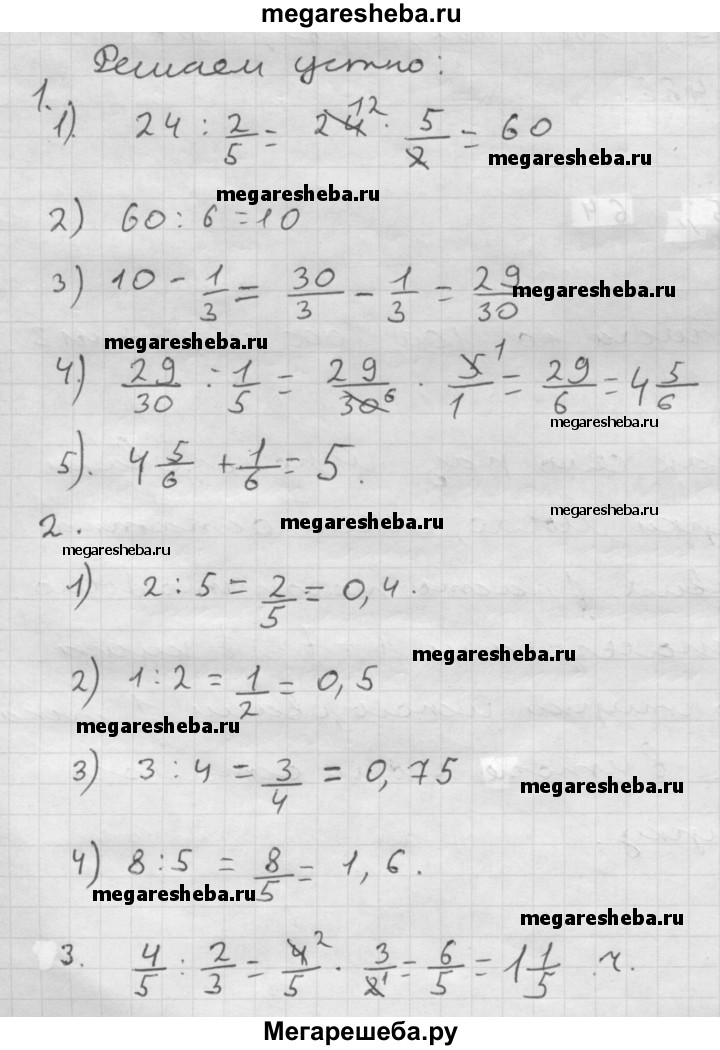 megaresheba.ru
Решаем устно:
1.
1). 24 : 2/5 = 24 12 · 5/2 = 60
megaresheba.ru
megaresheba.ru
2) 60 : 6 = 10
3) 10 - 1/3 = 30/3 - 1/3 = 29/30
megaresheba.ru
megaresheba.ru
4.) 29/30 : 1/5 = 29/30 6 · 5 1/1 = 29/6 = 4 5/6
megaresheba.ru
5). 4 5/6 + 1/6 = 5.
megaresheba.ru
2.
megaresheba.ru
megaresheba.ru
1) 2 : 5 = 2/5 = 0,4.
megaresheba.ru
2) 1 : 2 = 1/2 = 0,5
megaresheba.ru
3) 3 : 4 = 3/4 = 0,75
megaresheba.ru
4) 8 : 5 = 8/5 = 1,6.
megaresheba.ru
megaresheba.ru
3. 4/5 : 2/3 = 4 2/5 · 3/2 1 = 6/5 = 1 1/5 ч.
Мегарешеба.ру